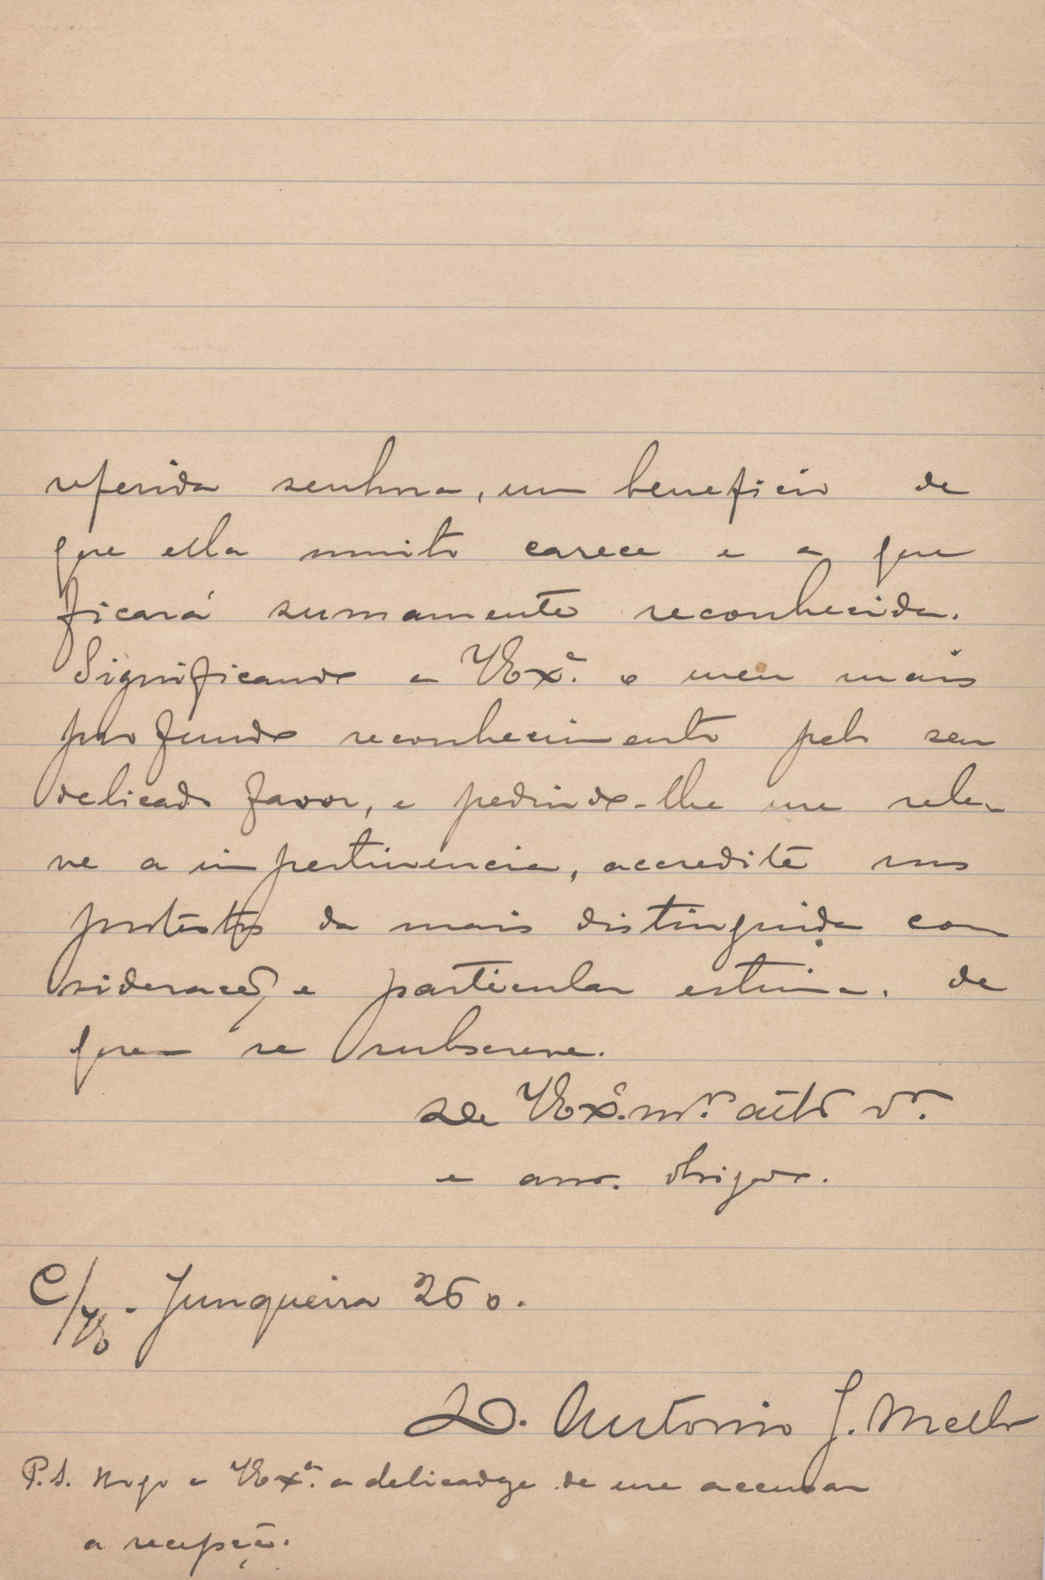 referida senhora, um beneficio de
que ella muito carece e a que
ficará sumamente reconhecida.
Significando a V Exª. o meu mais
profundo reconhecimento pelo seu
delicado favor, e pedindo-lhe me rele-
ve a impertinencia, accredite nos
protestos da mais distinguida con
sideração e particular estima, de
quem se subscreve.
De V Exª. mᵗᵒ. attº vʳ.
e amº. obrigdo.
C/ - Junqueira 260.
D. Antonio J. Mello
P.S. Rogo a V Exª. a delicadeza de me accusar
a recepção.